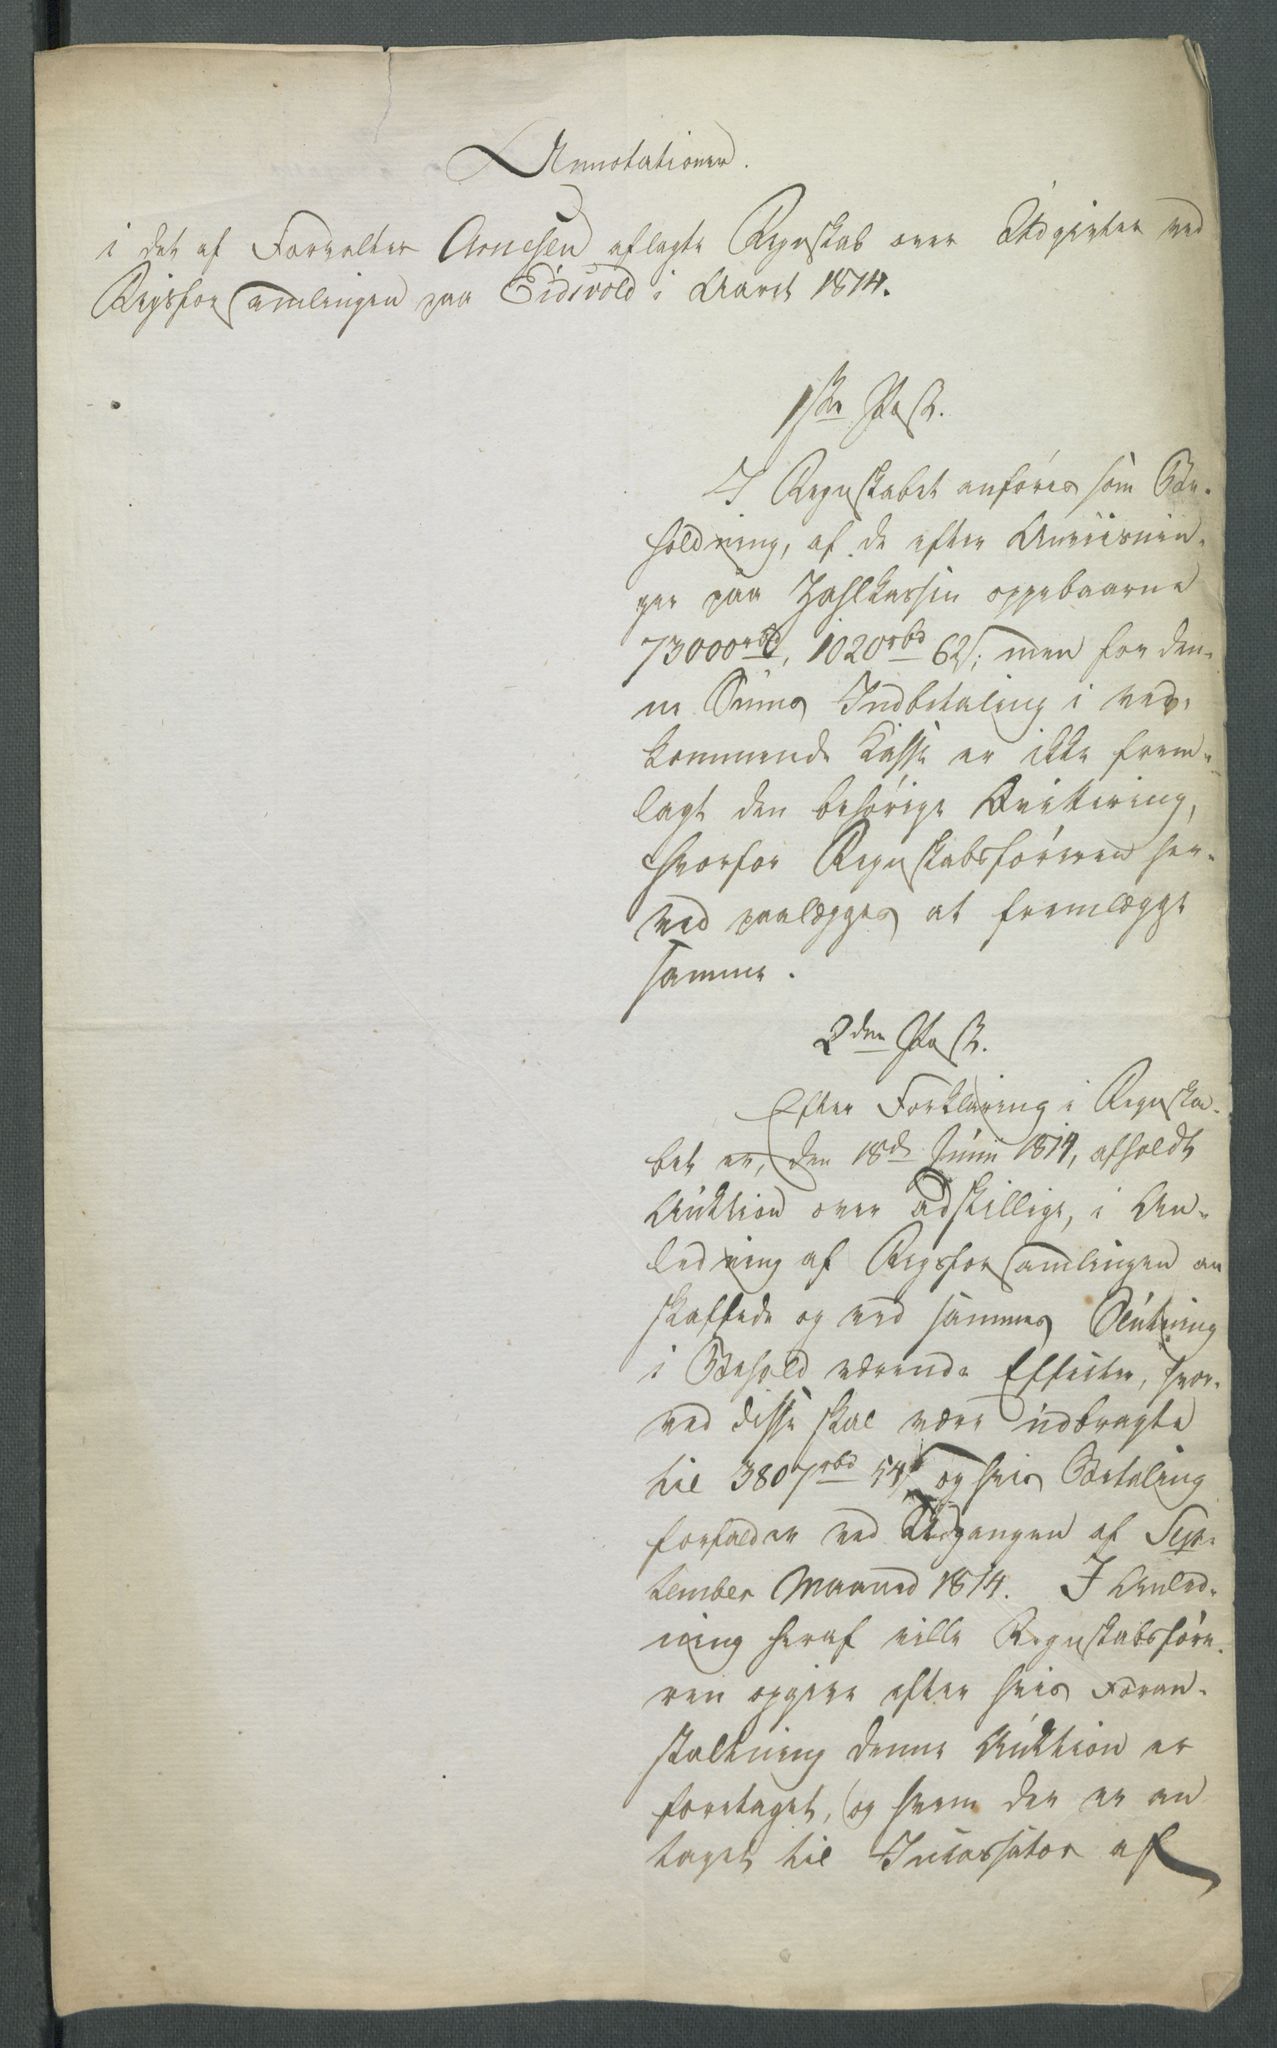 Annotationer.
i det af Forvalter Arnesen aflagte Regnskab over Udgivter ved
Rigsforsamlingen paa Eidsvold i Aaret 1814.
1ste Post.
I Regnskabet anføres som Be-
holdning, af de efter Anviisnin-
ger paa Zahlkassen oppebaarne
73000 rbd, 1020 rbd 62 s; men for den-
ne Sums Indbetaling i ved-
kommende Kasse er ikke frem-
lagt den behørige Qvittering,
hvorfor Regnskabsføreren her-
ved paalægges at fremlægge
samme.
2den Post.
Efter Forklaring i Regnska-
bet er, den 18de Juni 1814, afholdt
Auktion over adskillige, i An-
ledning af Rigsforsamlingen an
skaffede og ved sammes Slutning
i Behold værende Effecter, hvor-
ved disse skal være udbragte
til 3807 rbd 54 s og hvis Betaling
forfalder ved Udgangen af Sep-
tember Maaned 1814. I Anled-
ning heraf ville Regnskabsføre-
ren opgive efter hvis Foran-
staltning denne Auktion er
foretaget, og hvem der er an
taget til Incassator af